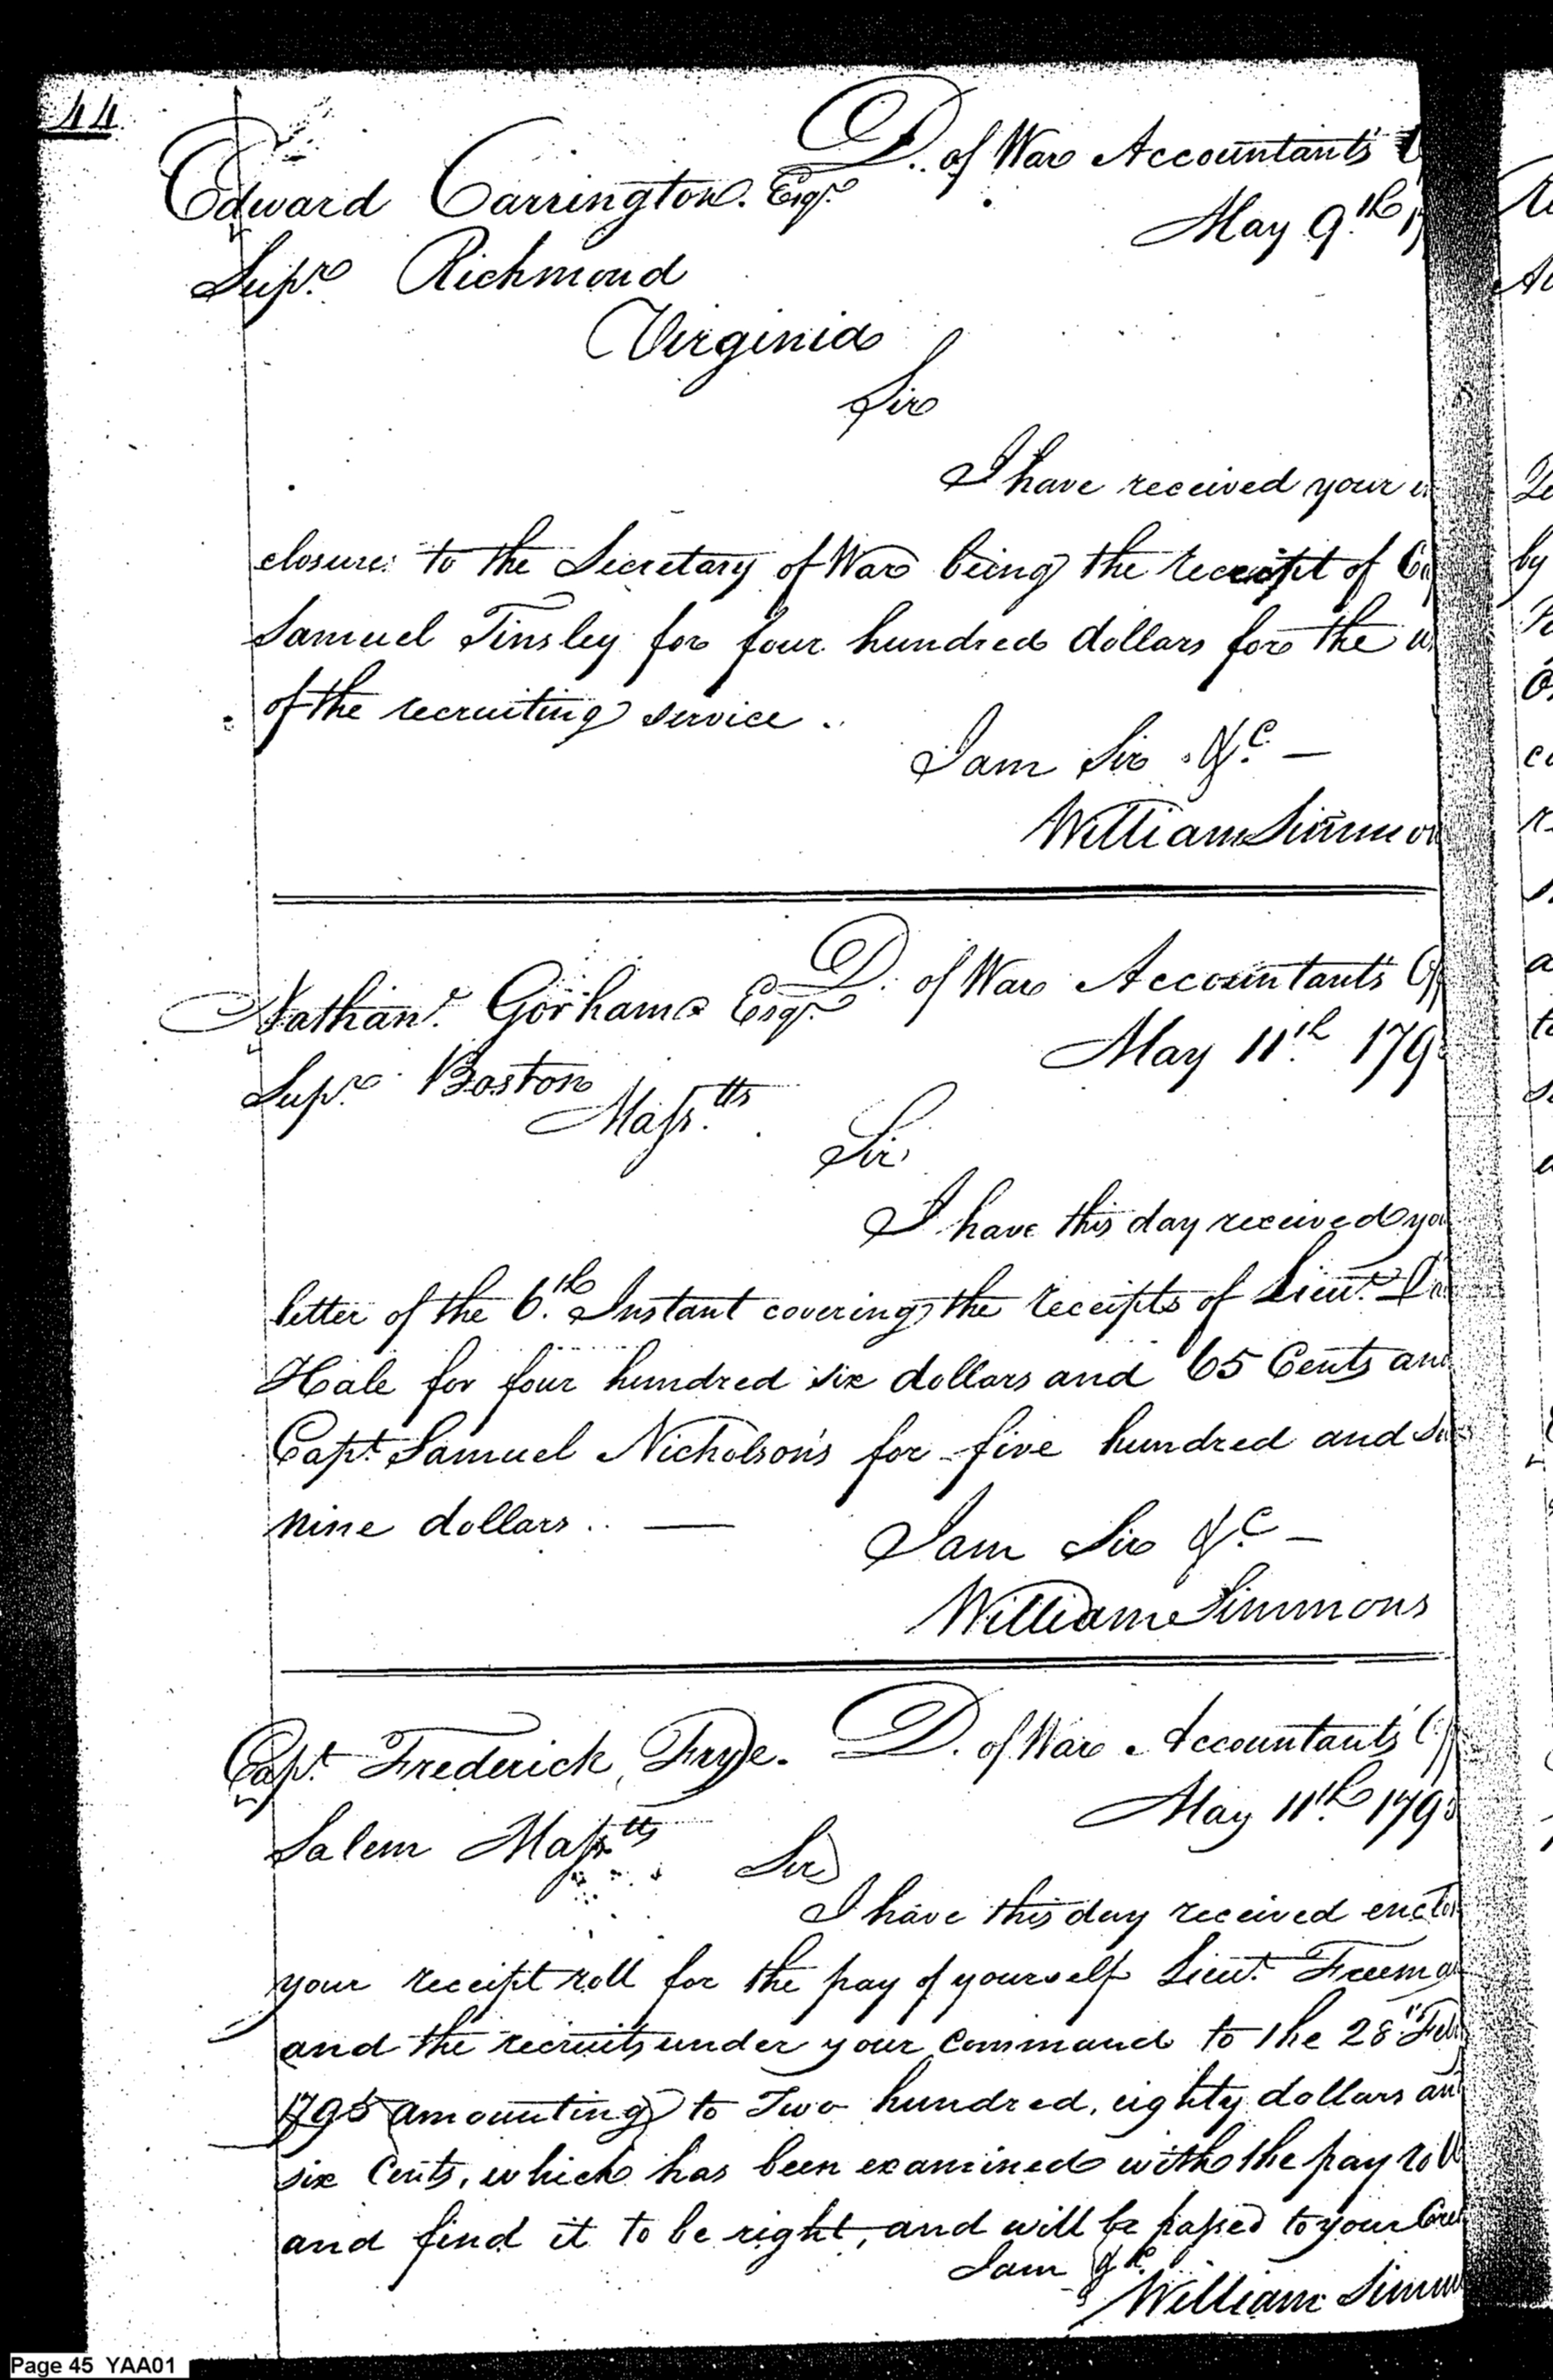 44
D. of War Accountant's
Edward Carrington. Esqr.
May 9th
Supr. Richmond
Virginia
Sir
I have received your
closure to the Secretary of War being the receipt of
Samuel Tinsley for four hundred dollars for the
of the recruiting service.
I am Sir &c. —
William Simmon
D. of War Accountant's
Nathanl. Gorham Esqr.
May 11th 179
Supr. Boston
Massts.
Sir
I have this day received you
letter of the 6th. Instant covering the receipts of Lieut.
Hale for four hundred six dollars and 65 Cents and
Capt. Samuel Nicholson's for five hundred and
nine dollars.. —
I am Sir &c —
William Simmons
Capt. Frederick Frye. D. of War Accountant's
May 11th 179
Salem Massts
Sir
I have this day received
your receipt roll for the pay of yourself Lieut. Freema
and the recruits under your command to the 28th Feb
1795 amounting to Two hundred, eighty dollars an
six Cents, which has been examined with the pay roll
and find it to be right, and will be passed to your
I am &c.
William Simm
by
Page 45 YAA01